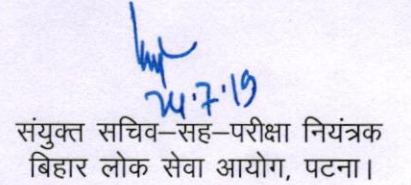 24.7.19
संयुक्त सचिव–सह–परीक्षा नियंत्रक
बिहार लोक सेवा आयोग, पटना।